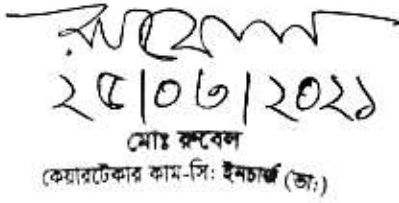 রুবেল
২৫|০৩|২০২১
মোঃ রুবেল
কেয়ারটেকার কাম-সি: ইনচার্জ (ভা:)